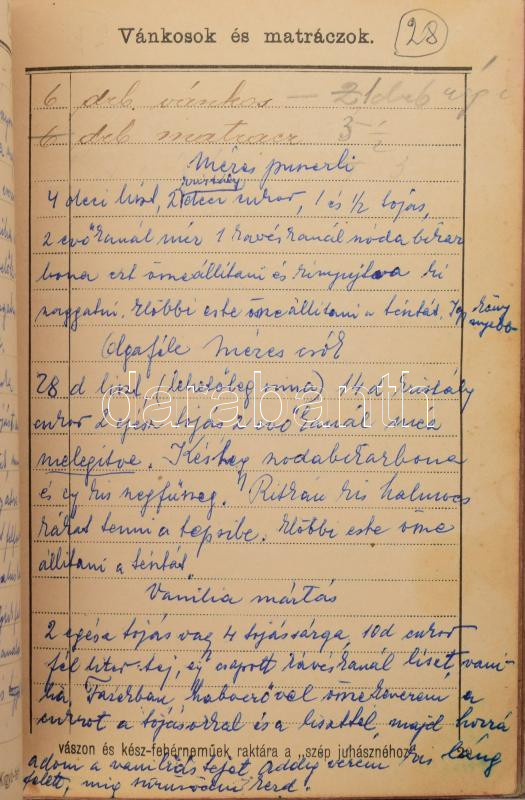 Vánkosok és matráczok.
28
6 drb. vánkos — 21 drb
6 drb matracz 3 1/2
Mézes puszerli
kristály
4 deci liszt, 2 deci cukor, 1 és 1/2 tojás,
2 evőkanál méz 1 kávéskanál szóda bikar
bona ezt összeállítani és kinyujtva ki
szaggatni. Előbbi este összeállítani a tésztát. Igy köny
nyebb
(Olgaféle Mézes csók
28 d liszt (lehetőleg sima) 14 d kristály
cukor 2 egész tojás 2 evőkanál méz
melegitve. Késhegy szodabikarbona
és egy kis szegfűszeg. Ritkán kis halmocs
kákat tenni a tepsibe. Előbbi este össze
állítani a tésztát
Vanilia mártás
2 egész tojás vagy 4 tojássárga, 10 d cukor
fél liter tej, egy csapott kávéskanál liszt, vani
lia, Fazékban habverővel összekeverem a
cukrot a tojásokkal és a liszttel, majd hozzá
vászon és kész-fehérneműek raktára a „szép juhásznéhoz"
adom a vaniliás tejet addig verem kis láng
felett, mig sűrűsödni kezd.
darabanth